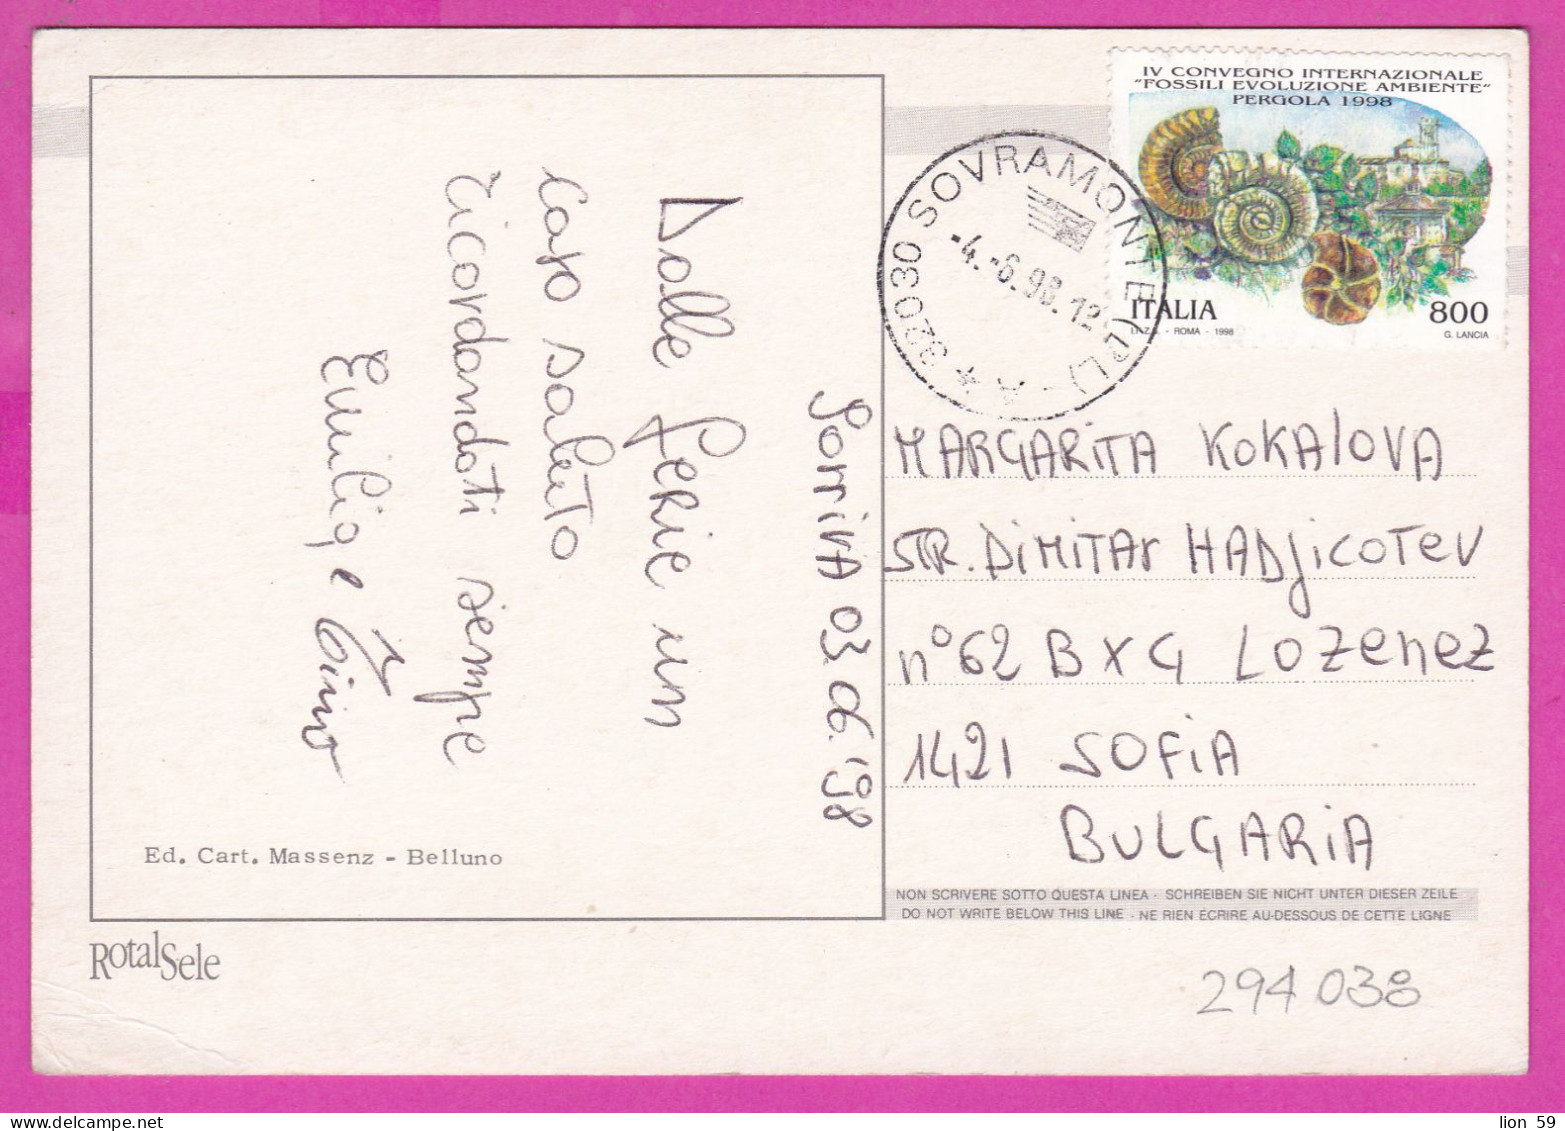 IV CONVEGNO INTERNAZIONALE
"FOSSILI EVOLUZIONE AMBIENTE"
PERGOLA 1998
ITALIA
800
I.P.Z.S. - ROMA - 1998
G. LANCIA
32030 SOVRAMONTE (BL) - A *
-4.-6.98.12
Sorriva 03.06.'98
Dalle ferie un
caro saluto
ricordandoti sempre
MARGARITA KOKALOVA
STR. DIMITAR HADJICOTEV
n° 62 B X G LOZENEZ
1421 SOFIA
BULGARIA
Ed. Cart. Massenz - Belluno
NON SCRIVERE SOTTO QUESTA LINEA - SCHREIBEN SIE NICHT UNTER DIESER ZEILE
DO NOT WRITE BELOW THIS LINE - NE RIEN ÉCRIRE AU-DESSOUS DE CETTE LIGNE
RotalSele
294038
delcampe.net
lion 59